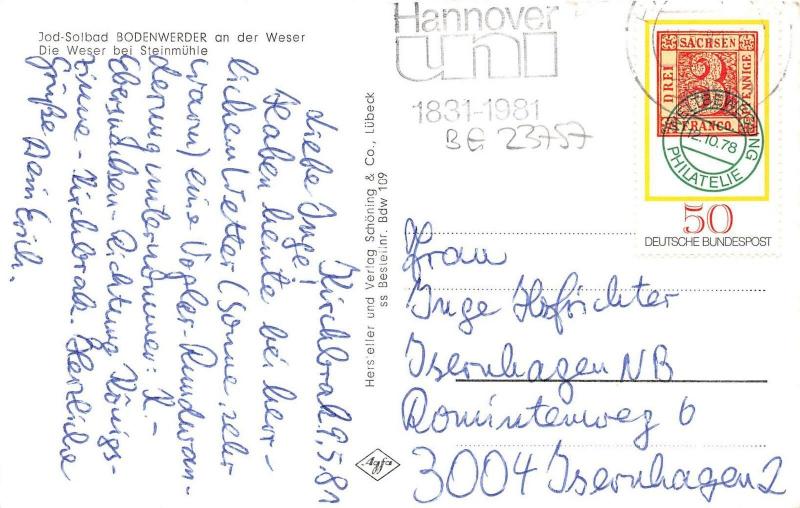 Jod-Solbad BODENWERDER an der Weser
Die Weser bei Steinmühle
Kirchbrak 9.5.81
Liebe Inge!
Haben heute bei herr-
lichem Wetter (Sonne, sehr
warm) eine Vogler-Rundwan-
derung unternommen: K. -
Ebersnacken - Richtung Königs-
zinne - Kirchbrak. Herzliche
Grüße Dein Erich.
Hersteller und Verlag Schöning & Co., Lübeck
ss Bestellnr. Bdw 109
Agfa
Hannover
uni
1831-1981
BE 23757
SACHSEN
DREI
3
PFENNIGE
FRANCO
WELTBEWEGUNG
12.10.78
PHILATELIE
50
DEUTSCHE BUNDESPOST
Frau
Inge Hofrichter
Isernhagen NB
Rominterweg 6
3004 Isernhagen 2